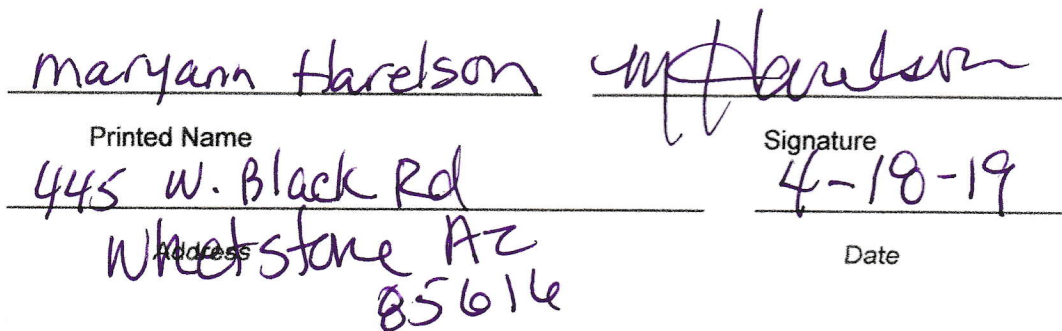 maryann Harelson mHarelson
Printed Name Signature
445 W. Black Rd 4-18-19
Address Date
Whetstone Az
85616